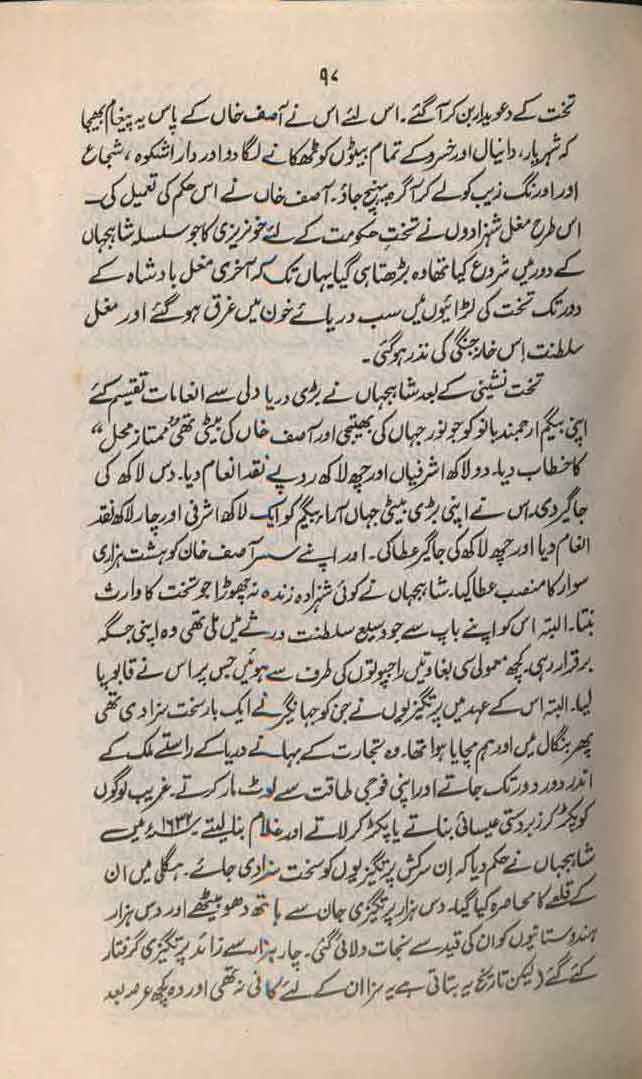 ۹۷
تخت کے دعویدار بن کر آ گئے۔ اس لئے اس نے آصف خاں کے پاس یہ پیغام بھیجا
کہ شہریار، دانیال اور خسرو کے تمام بیٹوں کو ٹھکانے لگا دو اور دارا شکوہ، شجاع
اور اورنگ زیب کو لے کر آگرہ پہنچ جاؤ۔ آصف خاں نے اس حکم کی تعمیل کی۔
اس طرح مغل شہزادوں نے تخت حکومت کے لئے خونریزی کا جو سلسلہ شاہجہاں
کے دور میں شروع کیا تھا وہ بڑھتا ہی گیا یہاں تک کہ آخری مغل بادشاہ کے
دور تک تخت کی لڑائیوں میں سب دریائے خون میں غرق ہو گئے اور مغل
سلطنت اِس خانہ جنگی کی نذر ہو گئی۔
تخت نشینی کے بعد شاہجہاں نے بڑی دریا دلی سے انعامات تقسیم کئے
اپنی بیگم ارجمند بانو کو جو نور جہاں کی بھتیجی اور آصف خاں کی بیٹی تھی "ممتاز محل"
کا خطاب دیا۔ دو لاکھ اشرفیاں اور چھ لاکھ روپے نقد انعام دیا۔ دس لاکھ کی
جاگیر دی۔ اس نے اپنی بڑی بیٹی جہاں آراء بیگم کو ایک لاکھ اشرفی اور چار لاکھ نقد
انعام دیا اور چھ لاکھ کی جاگیر عطا کی۔ اور اپنے سسر آصف خان کو ہشت ہزاری
سوار کا منصب عطا کیا۔ شاہجہاں نے کوئی شہزادہ زندہ نہ چھوڑا جو تخت کا وارث
بنتا۔ البتہ اس کو اپنے باپ سے جو وسیع سلطنت ورثے میں ملی تھی وہ اپنی جگہ
برقرار رہی۔ کچھ معمولی سی بغاوتیں راجپوتوں کی طرف سے ہوئیں جس پر اس نے قابو پا
لیا۔ البتہ اس کے عہد میں پرتگیزیوں نے جن کو جہانگیر نے ایک بار سخت سزا دی تھی
پھر بنگال میں اودھم مچایا ہوا تھا۔ وہ تجارت کے بہانے دریا کے راستے ملک کے
اندر دور دور تک جاتے اور اپنی فوجی طاقت سے لوٹ مار کرتے۔ غریب لوگوں
کو پکڑ کر زبردستی عیسائی بناتے یا پکڑ کر لاتے اور غلام بنا لیتے۔ ۱۶۳۲ء میں
شاہجہاں نے حکم دیا کہ اِن سرکش پرتگیزیوں کو سخت سزا دی جائے۔ ہگلی میں ان
کے قلعے کا محاصرہ کیا گیا۔ دس ہزار پرتگیزی جان سے ہاتھ دھو بیٹھے اور دس ہزار
ہندوستانیوں کو ان کی قید سے نجات دلائی گئی۔ چار ہزار سے زائد پرتگیزی گرفتار
کئے گئے (لیکن تاریخ یہ بتاتی ہے یہ سزا ان کے لئے کافی نہ تھی اور وہ کچھ عرصہ بعد